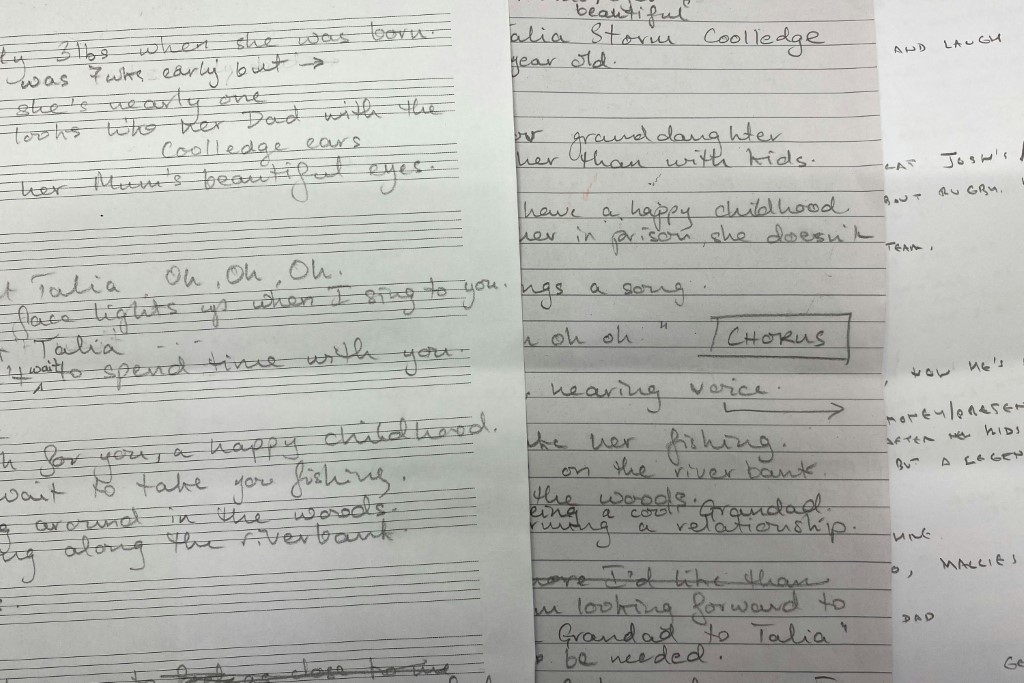 3lbs when she was born.
was 7wks early but →
she's nearly one
looks like her Dad with the
Coolledge ears
her Mum's beautiful eyes.
Talia Oh, Oh, Oh.
face lights up when I sing to you.
Talia
wait to spend time with you.
for you, a happy childhood.
wait to take you fishing.
around in the woods.
along the riverbank.
close to the
beautiful
alia Storm Coolledge
year old.
granddaughter
her than with kids.
have a happy childhood
her in prison, she doesn't
ngs a song.
oh oh."
CHORUS
nearing voice.
her fishing.
on the river bank.
the woods.
eing a cool Grandad.
rming a relationship.
more I'd like than
looking forward to
Grandad to Talia"
be needed.
AND LAUGH
JOSH'S
RUGBY.
TEAM.
NOW HE'S
MONEY/PRESEN
AFTER KIDS
BUT A LEGEN
MALLIES
DAD